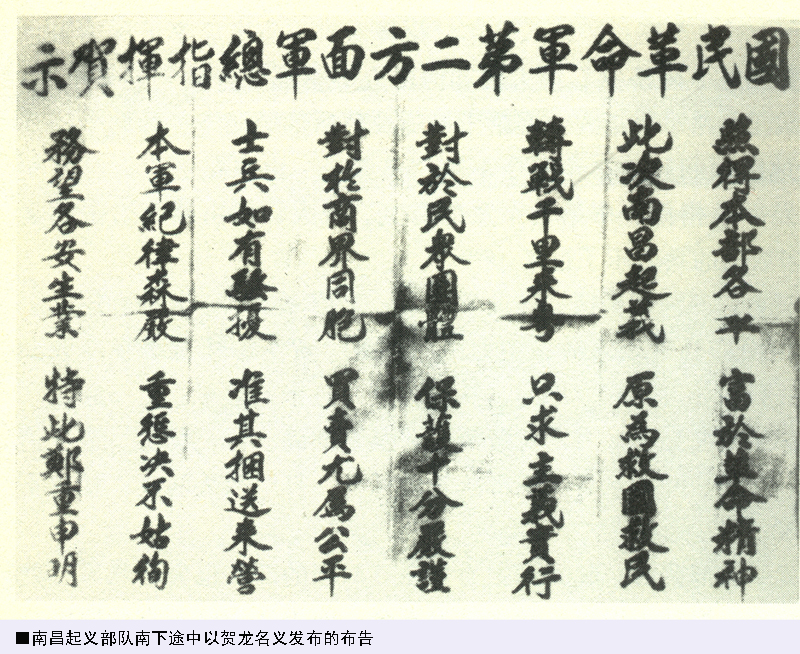 國民革命軍第二方面軍總指揮賀示
照得本部各軍 富於革命精神
此次南昌起義 原為救國救民
轉戰千里來粵 只求主義實行
對於民眾團體 保護十分嚴謹
對於商界同胞 買賣尤屬公平
士兵如有騷擾 准其捆送來營
本軍紀律森嚴 重懲决不姑徇
務望各安生業 特此鄭重申明
■南昌起义部队南下途中以贺龙名义发布的布告